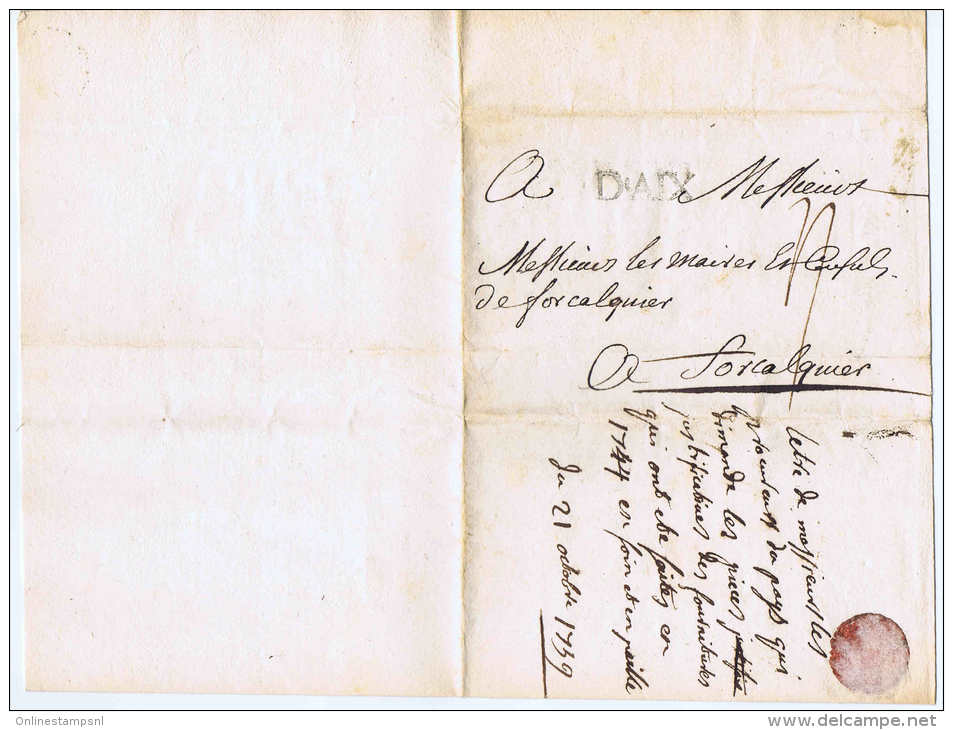 A D'AIX a Messieurs
Messieurs les maires Et Consuls
de forcalquier
A forcalquier
letre de messieurs les
procureurs du pays qui
demande les pieces justifica
justificatives des fournitures
qui ont ete faites en
1744 en foin et en paille
du 21 octobre 1759
Onlinestampsnl
http://www.delcampe.net